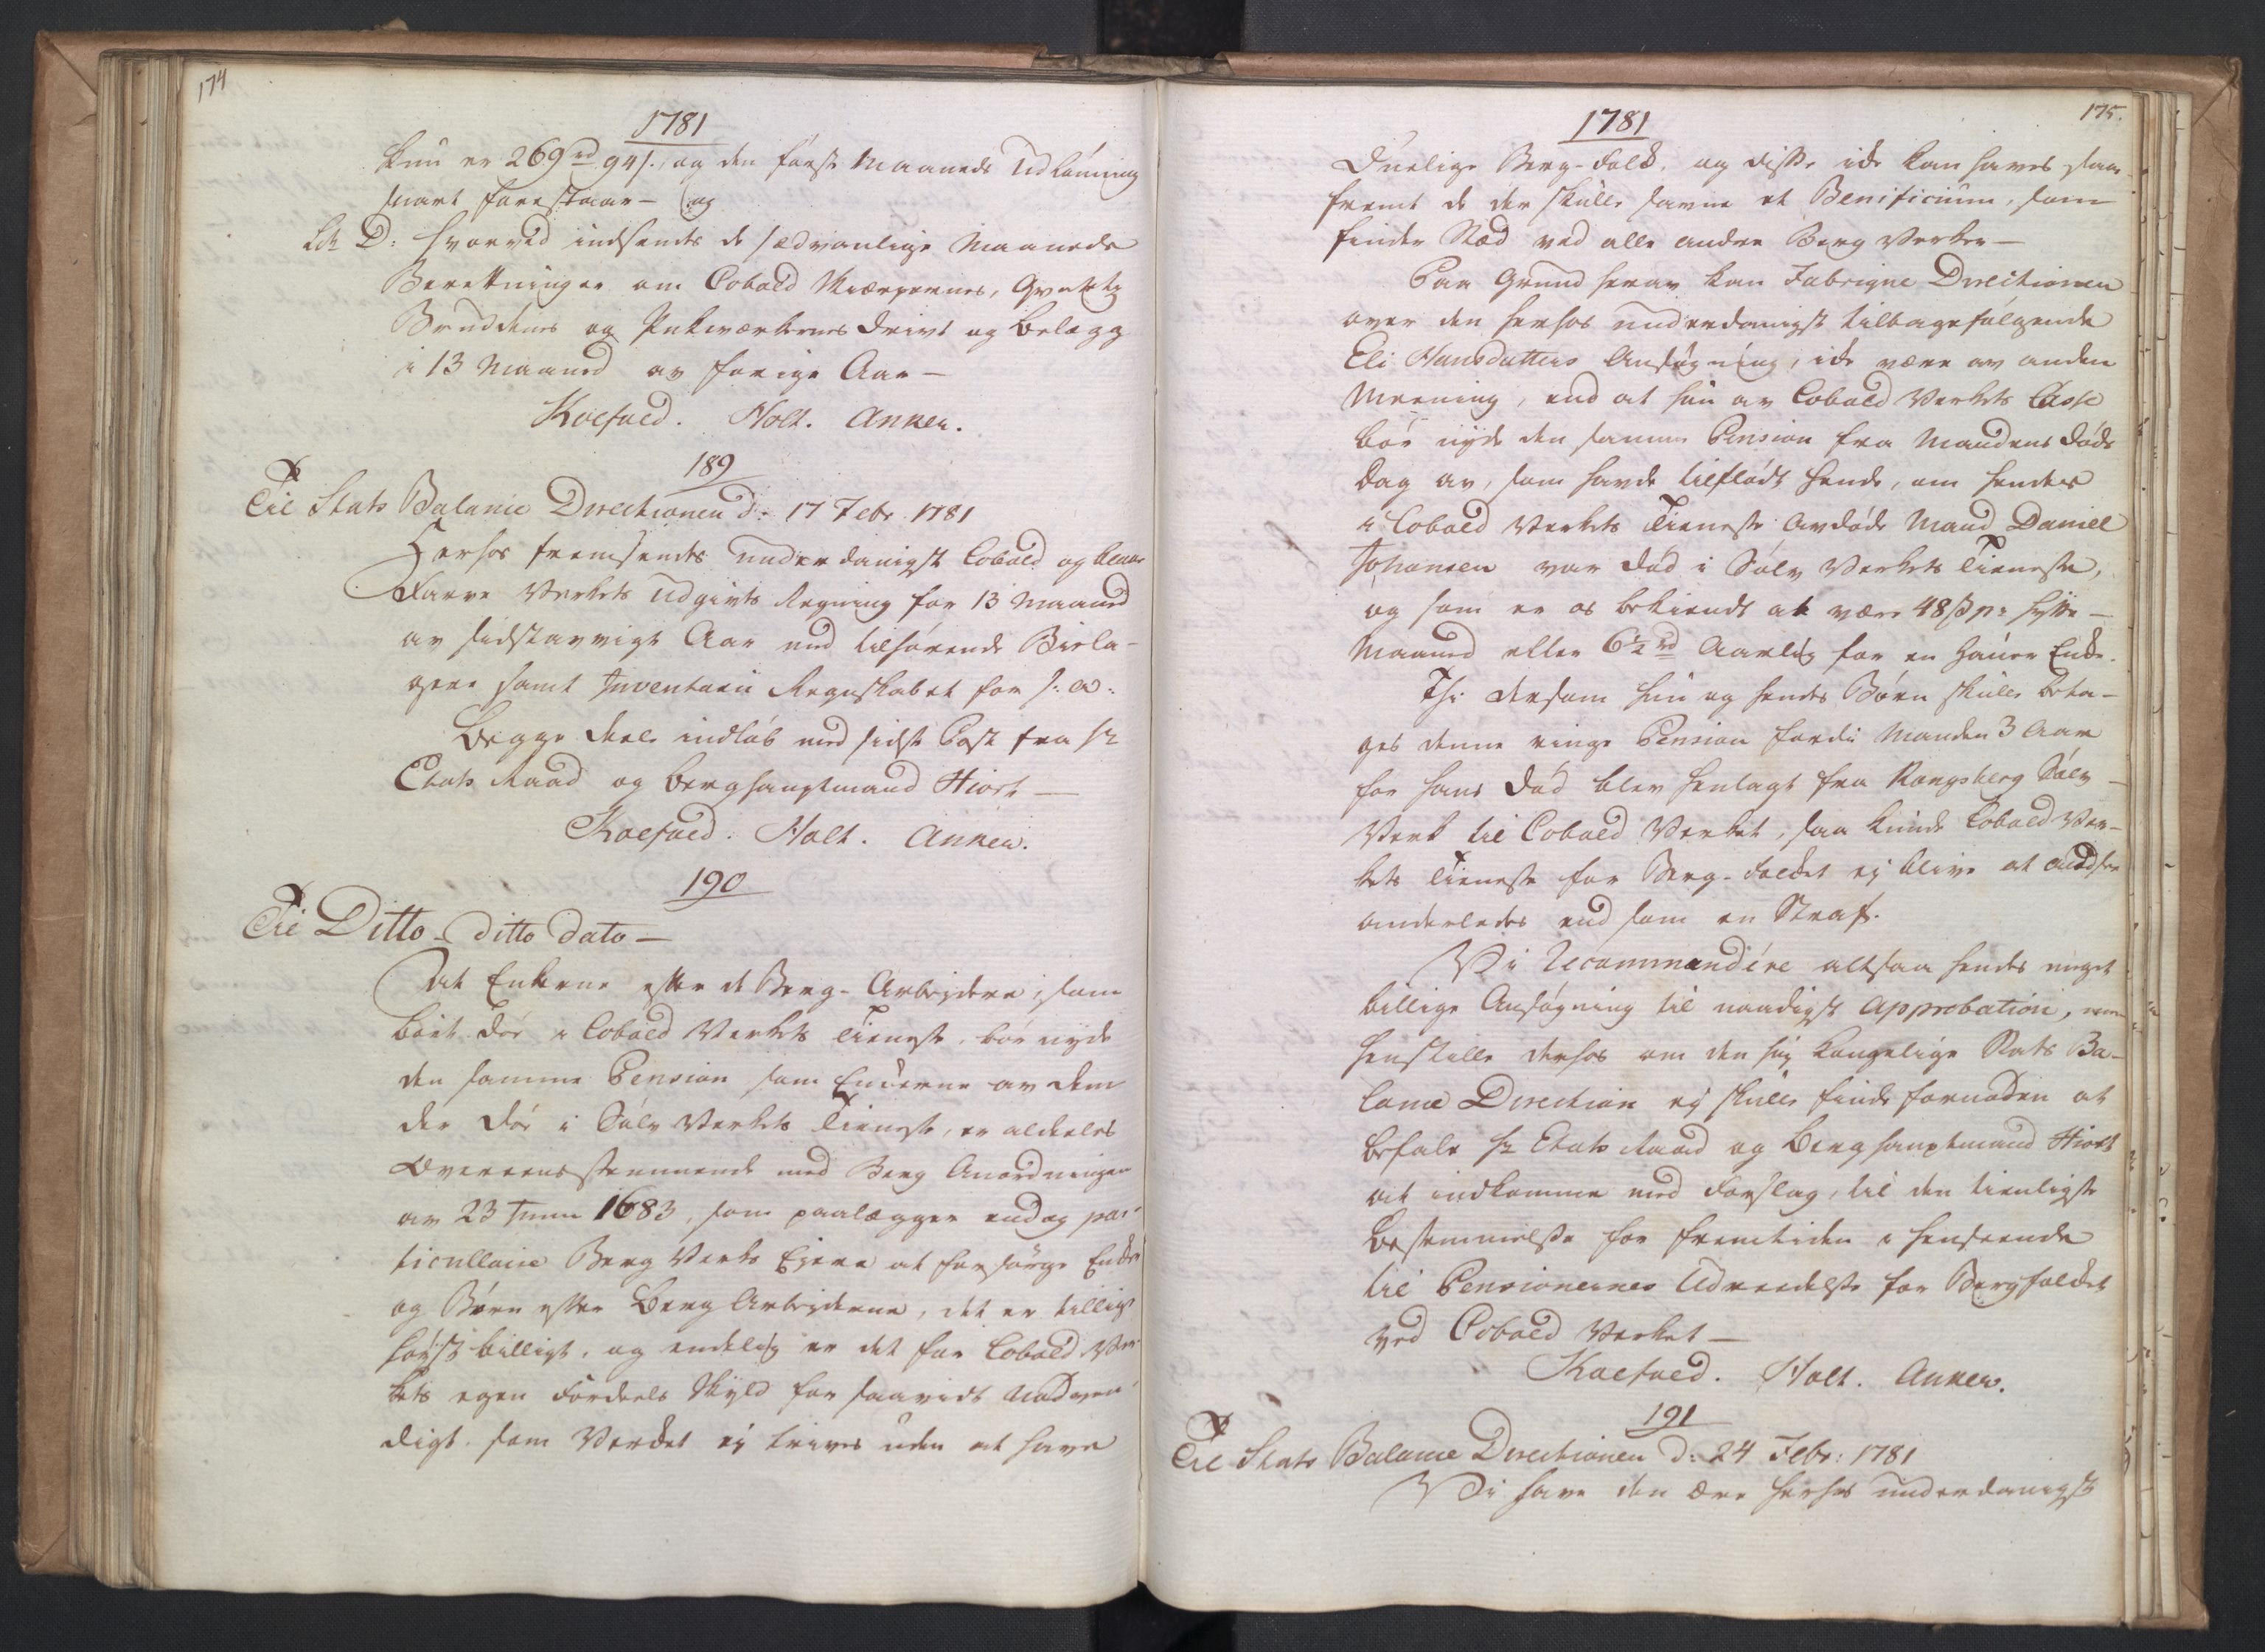 174
1781
kun er 269 rd 94 s., og den første Maaneds Udlønning
snart forestaar – og
Lit D: Hvorved indsendes de sædvanlige Maaneds
Berettninger om Cobold Skiærpernes,
Bruddenes og Pukværkernes Drivt og Belægg
i 13 Maaned av forige Aar –
Koefoed. Holt. Anker.
189
Til Stats Balance Directionen d: 17 Febr. 1781
Herhos fremsendes underdanigst Cobold og blaae
Farve Verkets Udgivts Regning for 13 Maaned
av sidstavvigte Aar med tilhørende Biela-
gere samt Inventarii Regnskabet for s: a:
Begge dele indløb med sidste Post fra Hr
Etats Raad og Berghauptmand Hiort –
Koefoed. Holt. Anker.
190
Til Ditto – ditto dato –
At Enkerne efter de Berg-Arbeydere, som
bort døe i Cobold Verkets Tieneste, bør nyde
den samme Pension som Enkerne av dem
der døe i Sølv Verkets Tieneste, er aldeeles
Overeensstemmende med Berg Anordningen
av 23 Junii 1683, som paalægger endog par-
ticullaire Berg Verks Eiere at forsørge Enker
og Børn efter Berg Arbeyderne, det er tillige
høyst billigt, og endelig er det for Cobold Ver-
kets egen Fordeels Skyld for saavidt nødven-
digt, som Verket ey trives uden at have
175.
1781
Duelige Berg-Folk, og disse ikke kan haves saa-
fremt de der skulle savne et Benificium, som
finder Stæd ved alle andre Berg Verker –
Paa Grund herav kan Fabrique Directionen
over den herhos underdanigst tilbagefølgende
Eli Hansdatters Ansøgning, ikke være av anden
Meening, end at hun av Cobold Verkets Casse
bør nyde den samme Pension fra Mandens Døds
Dag av, som havde tilflødt hende, om hendes
i Cobold Verkets Tieneste avdøde Mand Daniel
Johansen var død i Sølv Verkets Tieneste,
og som er os bekiendt at være 48 s pr Hytte-
Maaned eller 6½ rd Aarlig for en Hauer Enke.
Thi dersom hun og hendes Børn skulle beta-
ges denne ringe Pension fordi Manden 3 Aar
for hans Død blev henlagt fra Kongsberg Sølv-
Verk til Cobold Verket, saa kunde Cobold Ver-
kets Tieneste for Berg-Folket ey blive at ansee
anderledes end som en Straf.
Vi Recommandere altsaa hendes meget
billige Ansøgning til naadigst Approbation, men
henstille derhos om den høy Kongelige Stats Ba-
lance Direction ey skulle finde fornøden at
befale Hr Etats Raad og Berghauptmand Hiort
at indkomme med Forslag, til den tienligste
Bestemmelse for fremtiden i henseende
til Pensionernes Udreedelse for Bergfolket
ved Cobold Verket –
Koefoed. Holt. Anker.
191
Til Stats Balance Directionen d: 24 Febr: 1781
Vi have den Ære herhos underdanigst